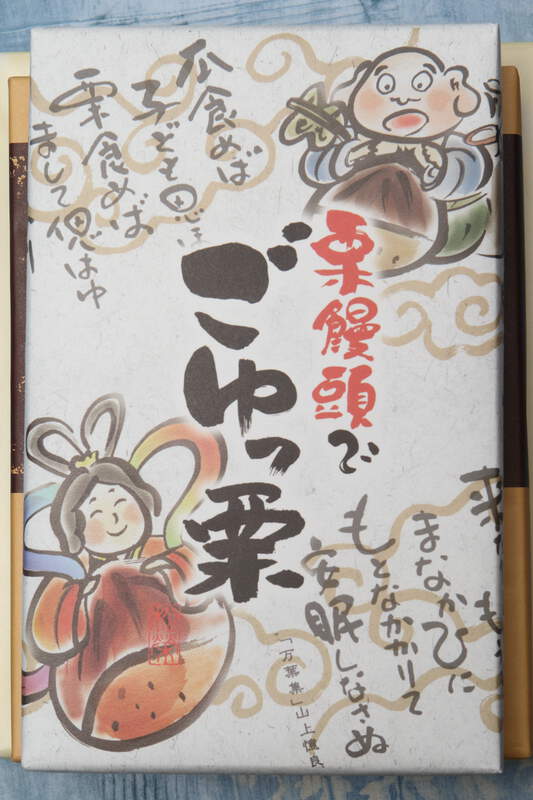 瓜食めば
子ども思ほ
栗食めば
まして偲はゆ
栗饅頭で
ごゆっ栗
まなかひに
もとなかかりて
安眠しなさぬ
「万葉集」山上憶良